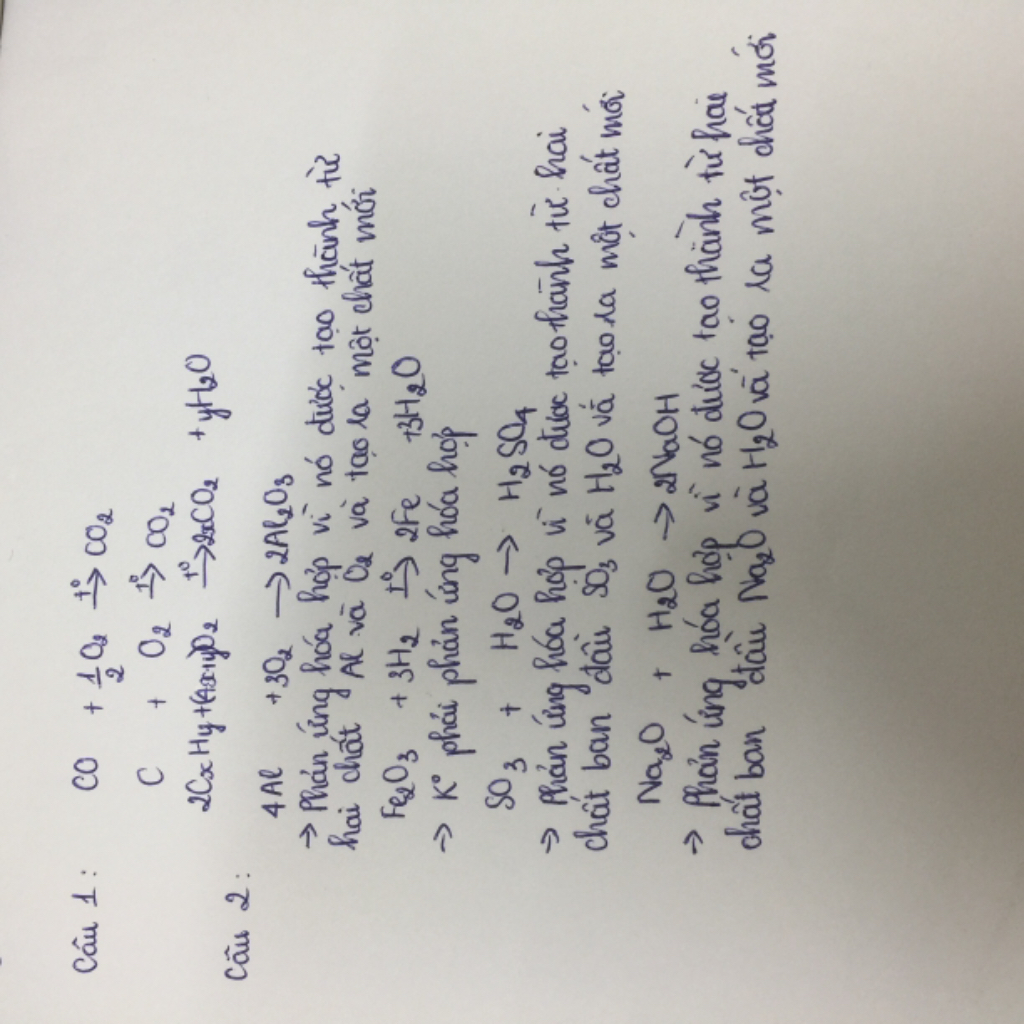 Câu 1: CO + 1/2 O₂ —t°→ CO₂
C + O₂ —t°→ CO₂
2CxHy+(4x+y)O₂ —t°→ 2xCO₂ + yH₂O
Câu 2:
4Al + 3O₂ → 2Al₂O₃
→ Phản ứng hóa hợp vì nó được tạo thành từ
hai chất Al và O₂ và tạo ra một chất mới
Fe₂O₃ + 3H₂ —t°→ 2Fe +3H₂O
→ K° phải phản ứng hóa hợp
SO₃ + H₂O → H₂SO₄
→ Phản ứng hóa hợp vì nó được tạo thành từ hai
chất ban đầu SO₃ và H₂O và tạo ra một chất mới
Na₂O + H₂O → 2NaOH
→ Phản ứng hóa hợp vì nó được tạo thành từ hai
chất ban đầu Na₂O và H₂O và tạo ra một chất mới